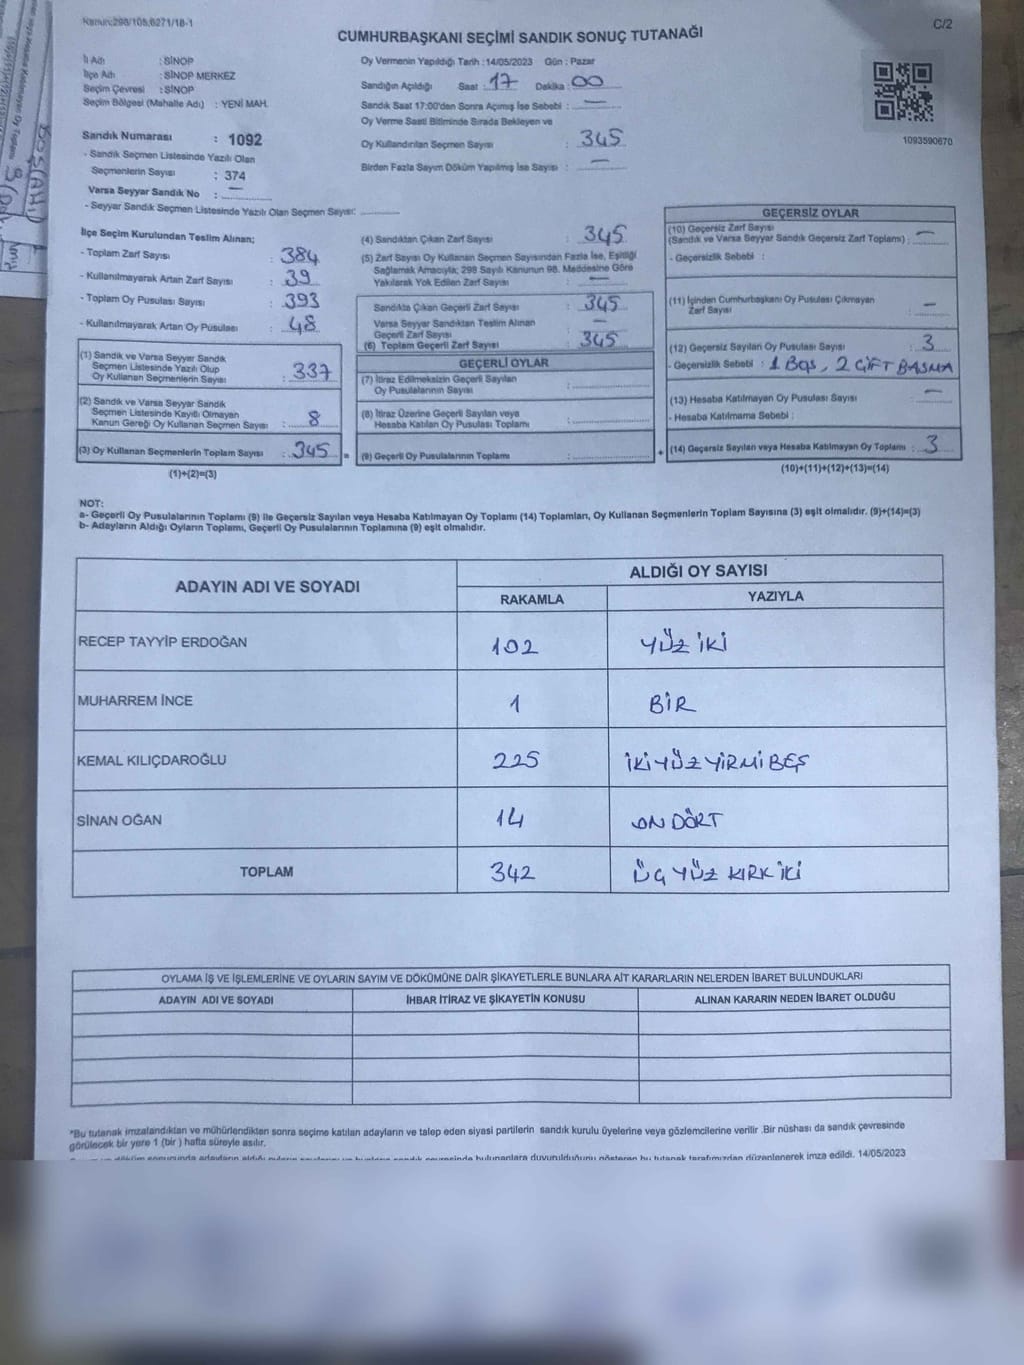 Kanun:298/105,6271/18-1
C/2
CUMHURBAŞKANI SEÇİMİ SANDIK SONUÇ TUTANAĞI
İl Adı : SİNOP
İlçe Adı : SİNOP MERKEZ
Seçim Çevresi : SİNOP
Seçim Bölgesi (Mahalle Adı) : YENİ MAH.
Sandık Numarası : 1092
- Sandık Seçmen Listesinde Yazılı Olan
Seçmenlerin Sayısı : 374
Varsa Seyyar Sandık No : —
- Seyyar Sandık Seçmen Listesinde Yazılı Olan Seçmen Sayısı: ............
Oy Vermenin Yapıldığı Tarih :14/05/2023 Gün : Pazar
Sandığın Açıldığı Saat : 17 Dakika : 00
Sandık Saat 17:00'den Sonra Açımış İse Sebebi : —
Oy Verme Saati Bitiminde Sırada Bekleyen ve
Oy Kullandırılan Seçmen Sayısı : 345
Birden Fazla Sayım Döküm Yapılmış İse Sayısı : —
1093590670
İlçe Seçim Kurulundan Teslim Alınan;
- Toplam Zarf Sayısı : 384
- Kullanılmayarak Artan Zarf Sayısı : 39
- Toplam Oy Pusulası Sayısı : 393
- Kullanılmayarak Artan Oy Pusulası : 48
(1) Sandık ve Varsa Seyyar Sandık
Seçmen Listesinde Yazılı Olup
Oy Kullanan Seçmenlerin Sayısı : 337
(2) Sandık ve Varsa Seyyar Sandık
Seçmen Listesinde Kayıtlı Olmayan
Kanun Gereği Oy Kullanan Seçmen Sayısı : 8
(3) Oy Kullanan Seçmenlerin Toplam Sayısı : 345 =
(1)+(2)=(3)
(4) Sandıktan Çıkan Zarf Sayısı : 345
(5) Zarf Sayısı Oy Kullanan Seçmen Sayısından Fazla İse, Eşitliği
Sağlamak Amacıyla; 298 Sayılı Kanunun 98. Maddesine Göre
Yakılarak Yok Edilen Zarf Sayısı : —
Sandıkta Çıkan Geçerli Zarf Sayısı : 345
Varsa Seyyar Sandıktan Teslim Alınan
Geçerli Zarf Sayısı : —
(6) Toplam Geçerli Zarf Sayısı : 345
GEÇERLİ OYLAR
(7) İtiraz Edilmeksizin Geçerli Sayılan
Oy Pusulalarının Sayısı : ............
(8) İtiraz Üzerine Geçerli Sayılan veya
Hesaba Katılan Oy Pusulası Toplamı : ............
(9) Geçerli Oy Pusulalarının Toplamı : ............ +
GEÇERSİZ OYLAR
(10) Geçersiz Zarf Sayısı
(Sandık ve Varsa Seyyar Sandık Geçersiz Zarf Toplamı) : —
- Geçersizlik Sebebi :
(11) İçinden Cumhurbaşkanı Oy Pusulası Çıkmayan
Zarf Sayısı : —
(12) Geçersiz Sayılan Oy Pusulası Sayısı : 3
- Geçersizlik Sebebi : 1 BOŞ, 2 ÇİFT BASMA
(13) Hesaba Katılmayan Oy Pusulası Sayısı : —
- Hesaba Katılmama Sebebi :
(14) Geçersiz Sayılan veya Hesaba Katılmayan Oy Toplamı : 3
(10)+(11)+(12)+(13)=(14)
NOT:
a- Geçerli Oy Pusulalarının Toplamı (9) ile Geçersiz Sayılan veya Hesaba Katılmayan Oy Toplamı (14) Toplamları, Oy Kullanan Seçmenlerin Toplam Sayısına (3) eşit olmalıdır. (9)+(14)=(3)
b- Adayların Aldığı Oyların Toplamı, Geçerli Oy Pusulalarının Toplamına (9) eşit olmalıdır.
ADAYIN ADI VE SOYADI
ALDIĞI OY SAYISI
RAKAMLA YAZIYLA
RECEP TAYYİP ERDOĞAN 102 YÜZ İKİ
MUHARREM İNCE 1 BİR
KEMAL KILIÇDAROĞLU 225 İKİ YÜZ YİRMİ BEŞ
SİNAN OĞAN 14 ON DÖRT
TOPLAM 342 ÜÇ YÜZ KIRK İKİ
OYLAMA İŞ VE İŞLEMLERİNE VE OYLARIN SAYIM VE DÖKÜMÜNE DAİR ŞİKAYETLERLE BUNLARA AİT KARARLARIN NELERDEN İBARET BULUNDUKLARI
ADAYIN ADI VE SOYADI İHBAR İTİRAZ VE ŞİKAYETİN KONUSU ALINAN KARARIN NEDEN İBARET OLDUĞU
*Bu tutanak imzalandıktan ve mühürlendikten sonra seçime katılan adayların ve talep eden siyasi partilerin sandık kurulu üyelerine veya gözlemcilerine verilir .Bir nüshası da sandık çevresinde
görülecek bir yere 1 (bir ) hafta süreyle asılır.
bulunanlara duyurulduğunu gösteren bu tutanak tarafımızdan düzenlenerek imza edildi. 14/05/2023